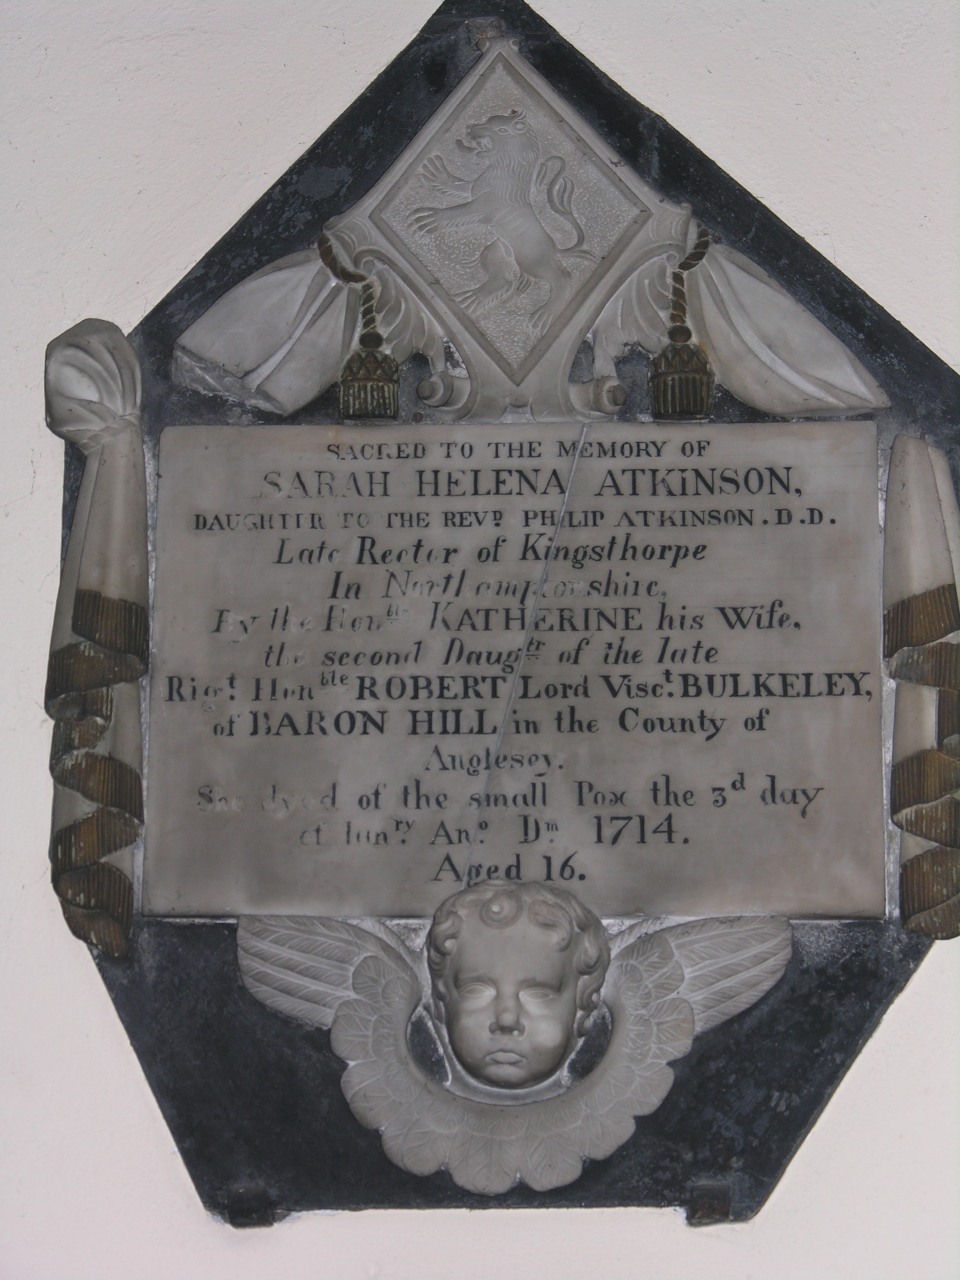 SACRED TO THE MEMORY OF
SARAH HELENA ATKINSON,
DAUGHTER TO THE REVᴰ PHILIP ATKINSON.D.D.
Late Rector of Kingsthorpe
In Northamptonshire,
By the Honᵇˡᵉ KATHERINE his Wife,
the second Daugᵗʳ of the late
Rigᵗ. Honᵇˡᵉ ROBERT Lord Viscᵗ. BULKELEY,
of BARON HILL in the County of
Anglesey.
She dyed of the small Pox the 3ᵈ day
of Ianʳʸ. Anº. Dᵐ 1714.
Aged 16.